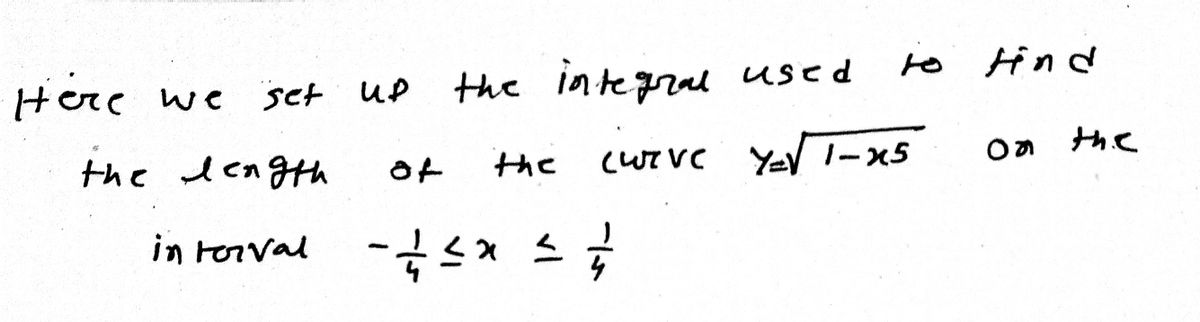 Here we set up the integral used to find
the length of the curve y=√1-x5 on the
interval -1/4 ≤ x ≤ 1/4